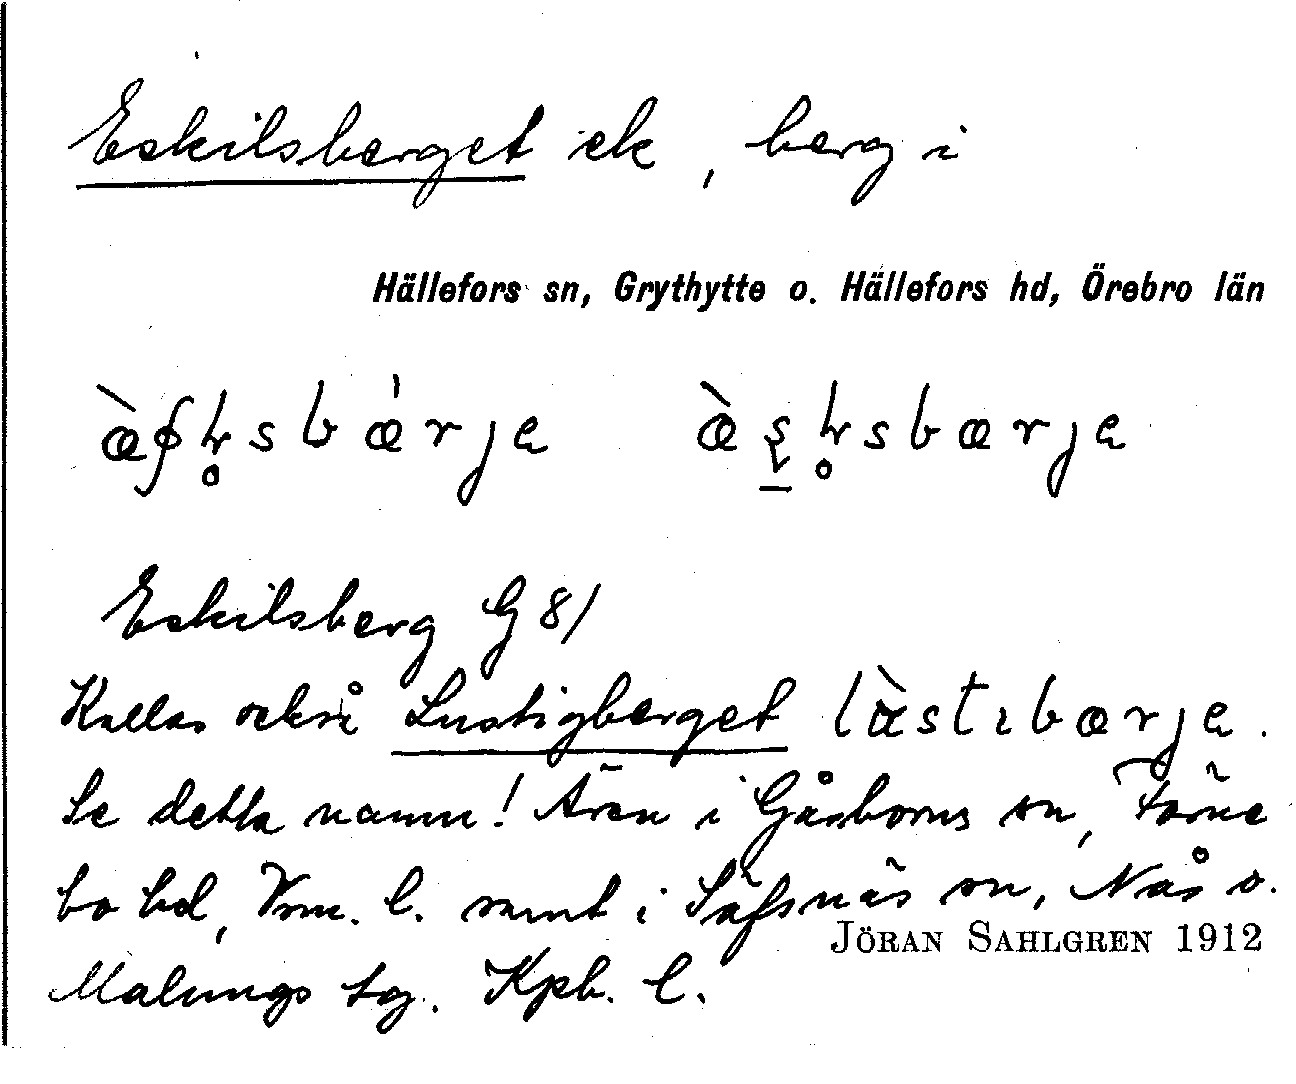 Eskilsberget ek, berg i
Hällefors sn, Grythytte o. Hällefors hd, Örebro län
Eskilsberg G 81
Kallas också Lustigberget
Se detta namn! Även i Gåsborns sn, Färne
bo hd, Vrm. l. samt i Säfsnäs sn, Nås o.
JÖRAN SAHLGREN 1912
Malungs tg. Kpb. l.